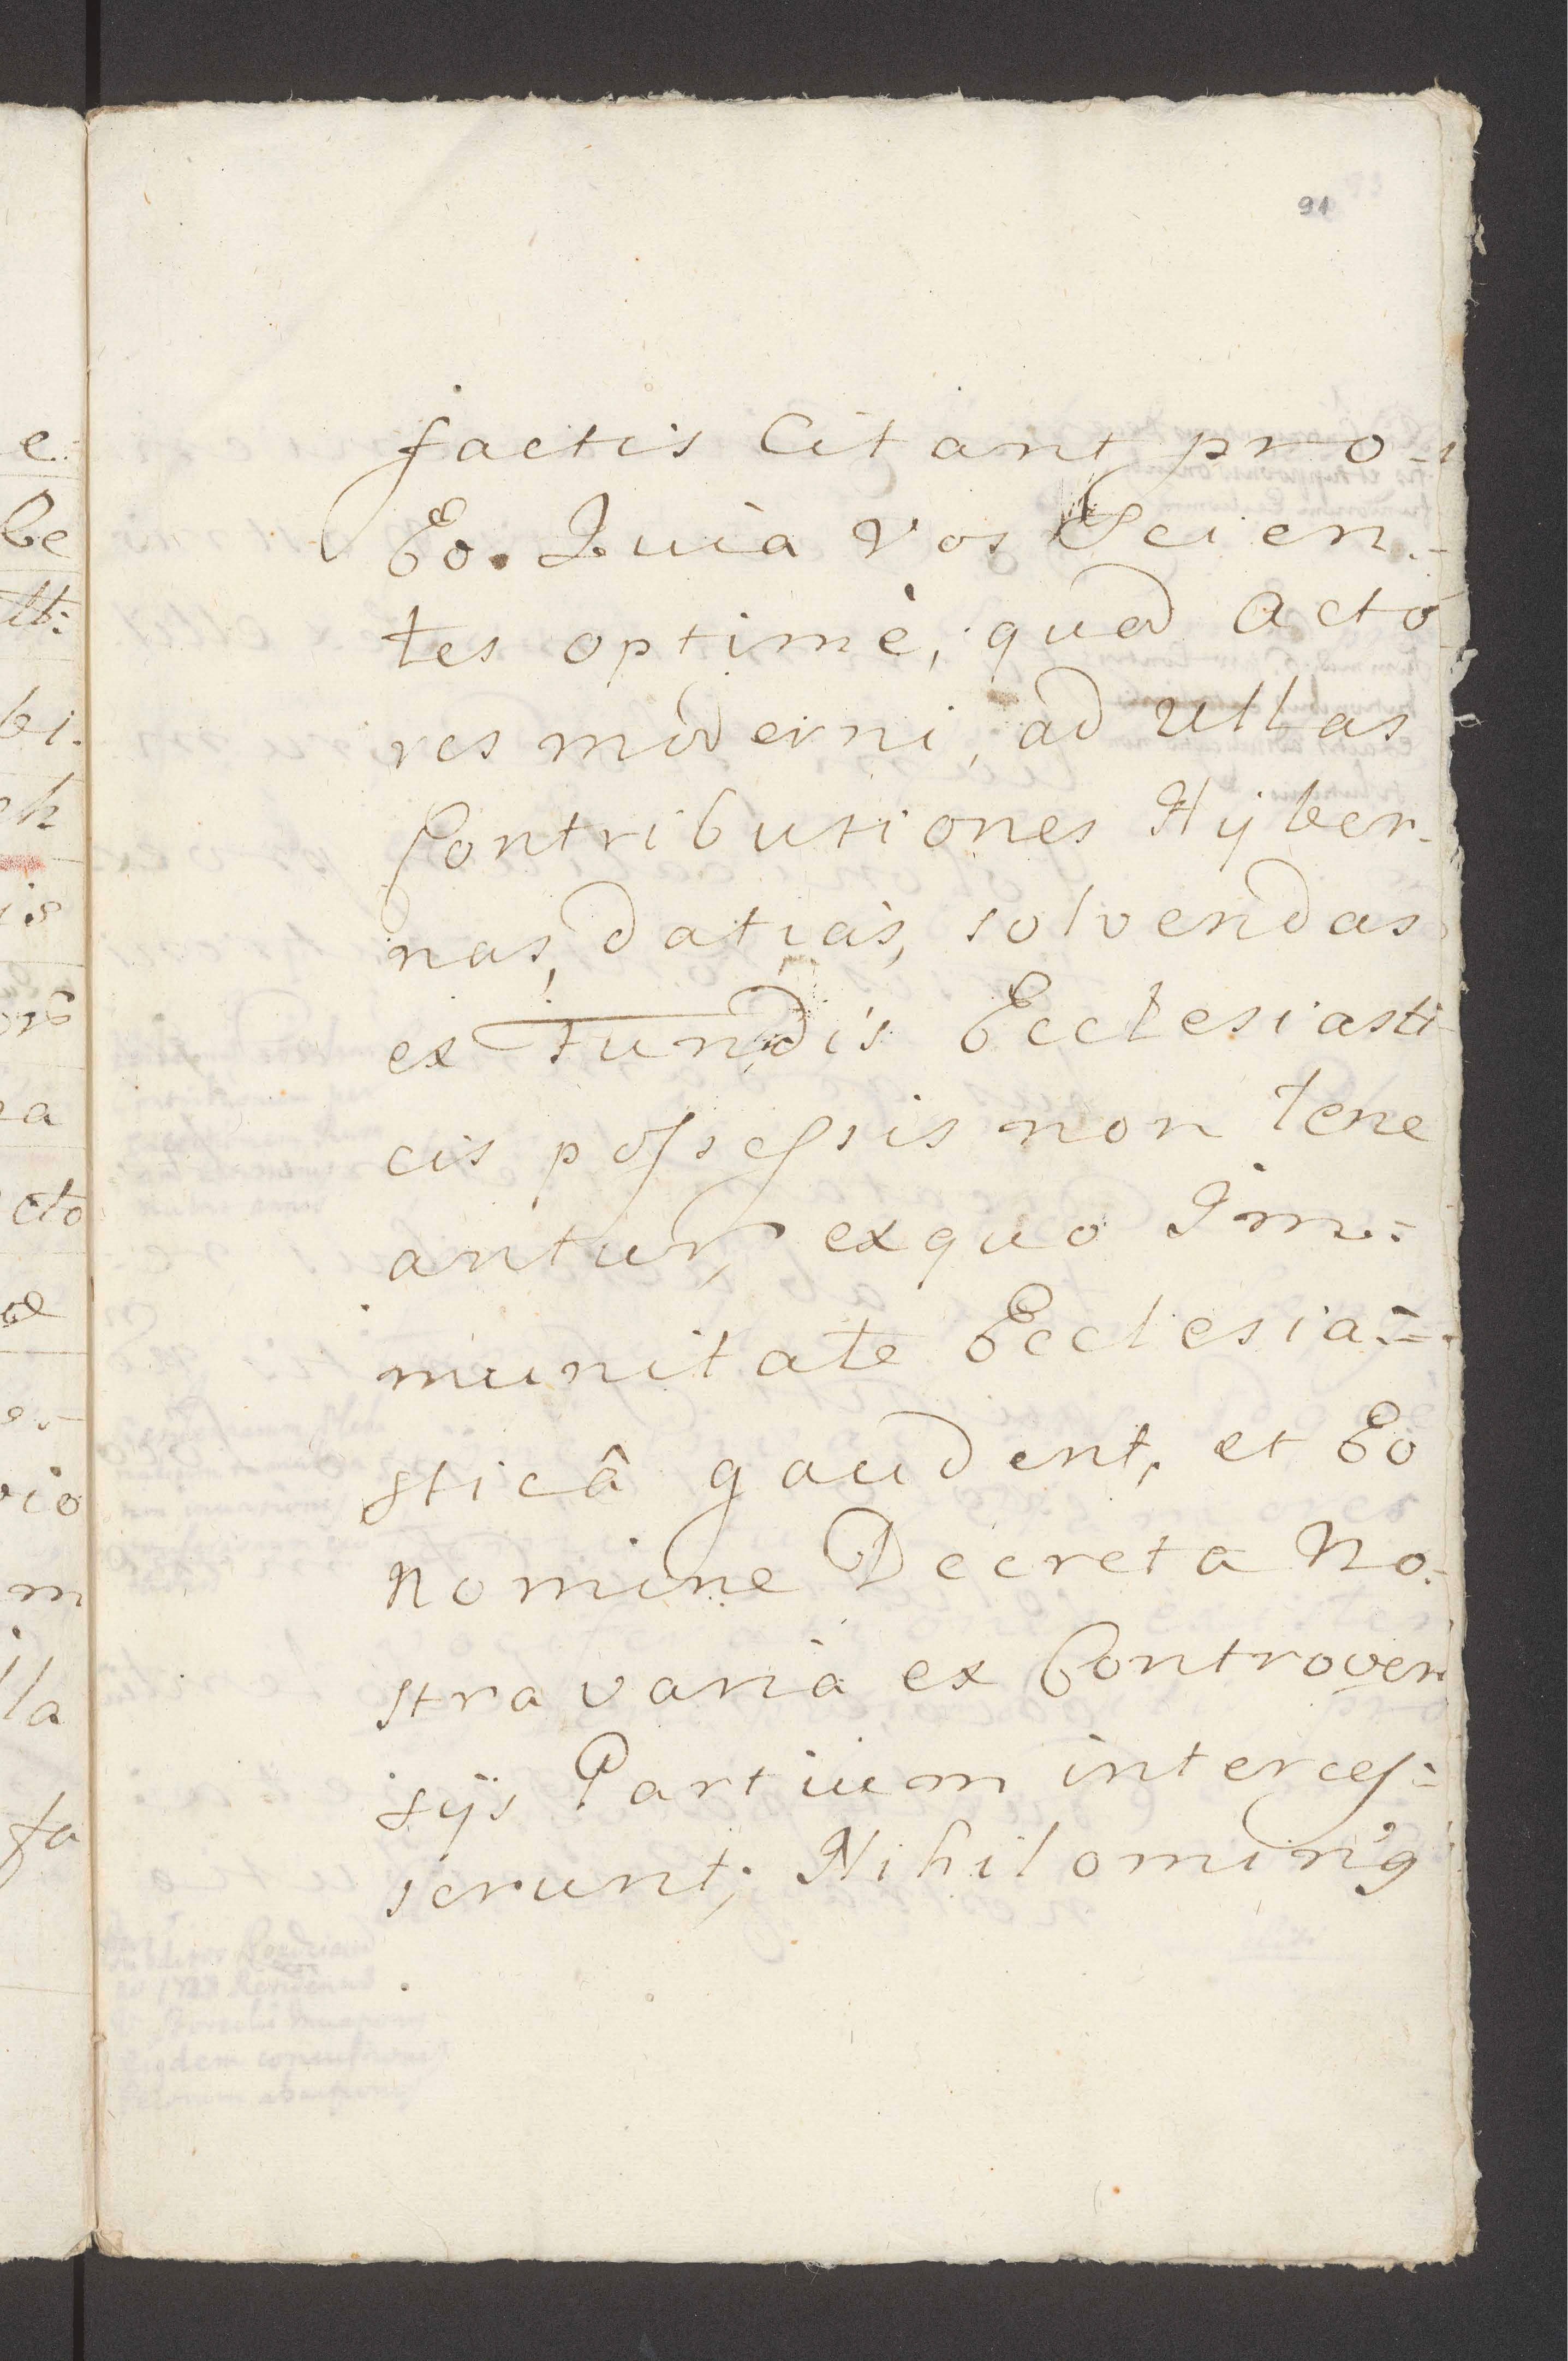 91
factis Citant pro-
Eo. Quia Vos Scien-
tes optimè, quod Acto
res moderni, ad ullas
Contributiones Hyber-
nas, datias, solvendas
ex Fundis Ecclesiasti
cis possessis non tene
antur, exquo Im-
munitate Ecclesia-
sticâ gaudent, et Eo
Nomine Decreta No-
stra varia ex Controver
sijs Partium interces-
serunt; Nihilomin9